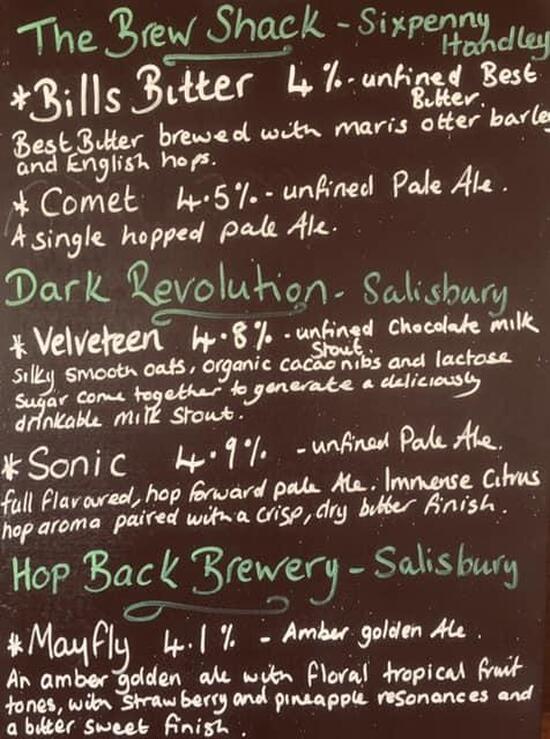 The Brew Shack - Sixpenny
Handley
*Bills Bitter 4% - unfined Best
Bitter.
Best Bitter brewed with maris otter barley
and English hops.
* Comet 4.5% - unfined Pale Ale.
A single hopped pale Ale.
Dark Revolution - Salisbury
* Velveteen 4.8% - unfined Chocolate milk
Stout
Silky smooth oats, organic cacao nibs and lactose
Sugar come together to generate a deliciously
drinkable milk stout.
* Sonic 4.9% - unfined Pale Ale.
full flavoured, hop forward pale Ale. Immense Citrus
hop aroma paired with a crisp, dry bitter finish.
Hop Back Brewery - Salisbury
* Mayfly 4.1% - Amber golden Ale.
An amber golden ale with floral tropical fruit
tones, with strawberry and pineapple resonances and
a bitter sweet finish.